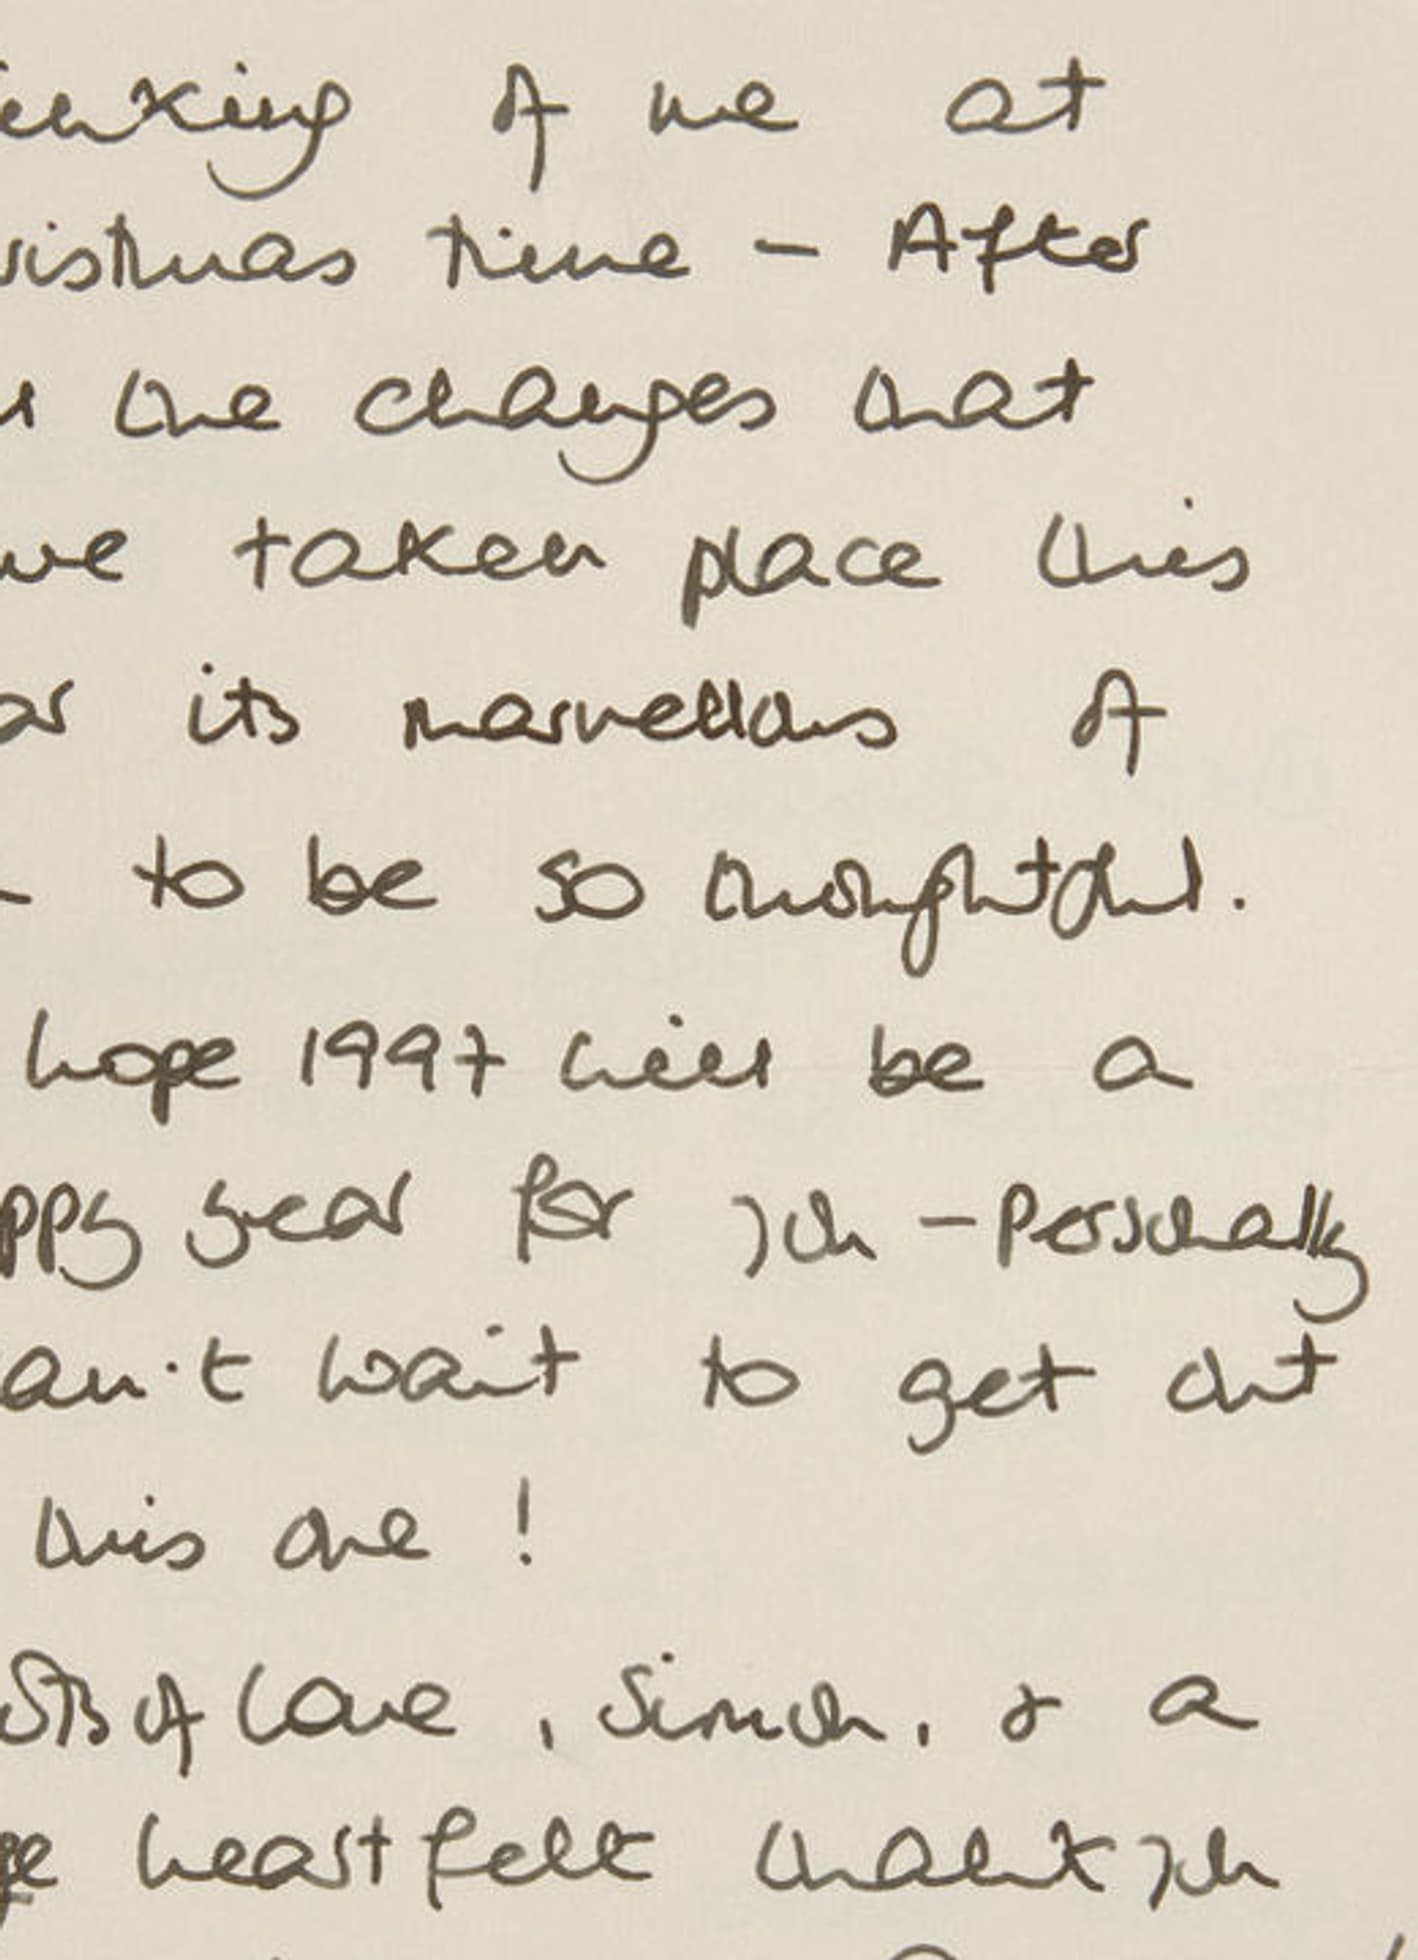 inking of me at
ristmas time - After
ll the changes that
ve taken place this
ar its marvellous of
to be so thoughtful.
hope 1997 will be a
ppy year for you - Personally
an't wait to get out
this one!
sts of love, Simon, & a
ge heartfelt thank you